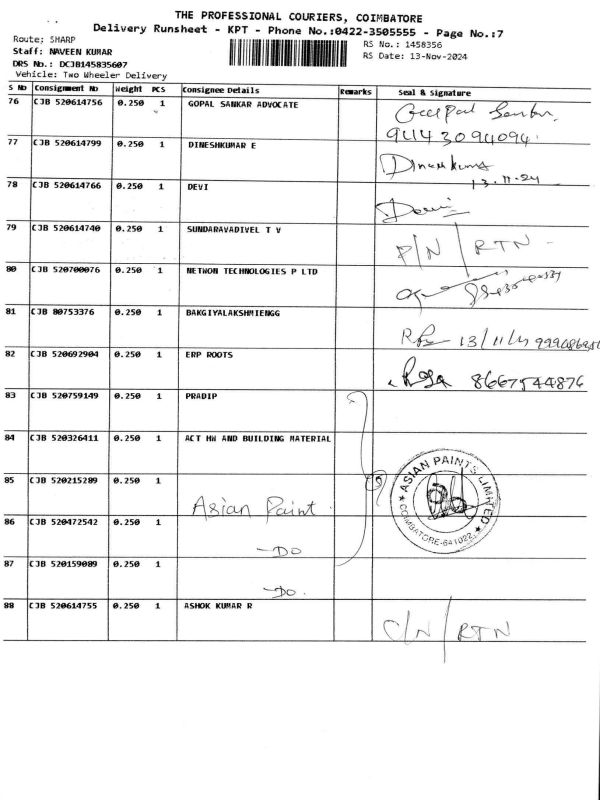 THE PROFESSIONAL COURIERS, COIMBATORE
Delivery Runsheet - KPT - Phone No.:0422-3505555 - Page No.:7
Route; SHARP
Staff: NAVEEN KUMAR
DRS No.: DCJB145835607
Vehicle: Two Wheeler Delivery
RS No.: 1458356
RS Date: 13-Nov-2024
S No Consignment No Weight PCS Consignee Details Remarks Seal & Signature
76 CJB 520614756 0.250 1 GOPAL SANKAR ADVOCATE
9114309 4094
77 CJB 520614799 0.250 1 DINESHKUMAR E Dinesh kumar
13.11.24
78 CJB 520614766 0.250 1 DEVI Devi
79 CJB 520614740 0.250 1 SUNDARAVADIVEL T V P/N / RTN -
80 CJB 520700076 0.250 1 NETWON TECHNOLOGIES P LTD
81 CJB 80753376 0.250 1 BAKGIYALAKSHMIENGG 13/11/24
82 CJB 520692904 0.250 1 ERP ROOTS Roja 8667544876
83 CJB 520759149 0.250 1 PRADIP
84 CJB 520326411 0.250 1 ACT HW AND BUILDING MATERIAL
85 CJB 520215289 0.250 1 Asian Paint
ASIAN PAINTS LIMITED
COIMBATORE-641022
86 CJB 520472542 0.250 1 -DO
87 CJB 520159089 0.250 1 -DO.
88 CJB 520614755 0.250 1 ASHOK KUMAR R C/N / RTN